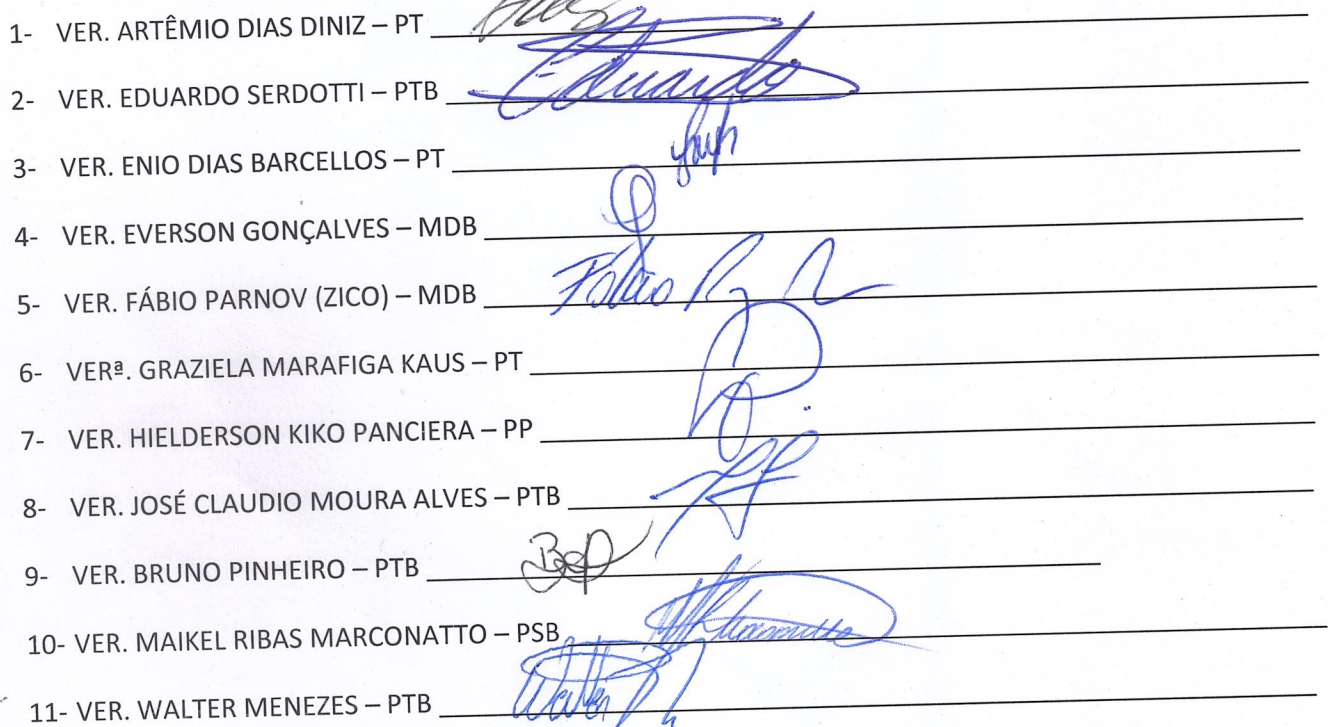 1- VER. ARTÊMIO DIAS DINIZ – PT
2- VER. EDUARDO SERDOTTI – PTB Eduardo
3- VER. ENIO DIAS BARCELLOS – PT
4- VER. EVERSON GONÇALVES – MDB
5- VER. FÁBIO PARNOV (ZICO) – MDB Fábio
6- VERª. GRAZIELA MARAFIGA KAUS – PT
7- VER. HIELDERSON KIKO PANCIERA – PP
8- VER. JOSÉ CLAUDIO MOURA ALVES – PTB
9- VER. BRUNO PINHEIRO – PTB
10- VER. MAIKEL RIBAS MARCONATTO – PSB
11- VER. WALTER MENEZES – PTB Walter